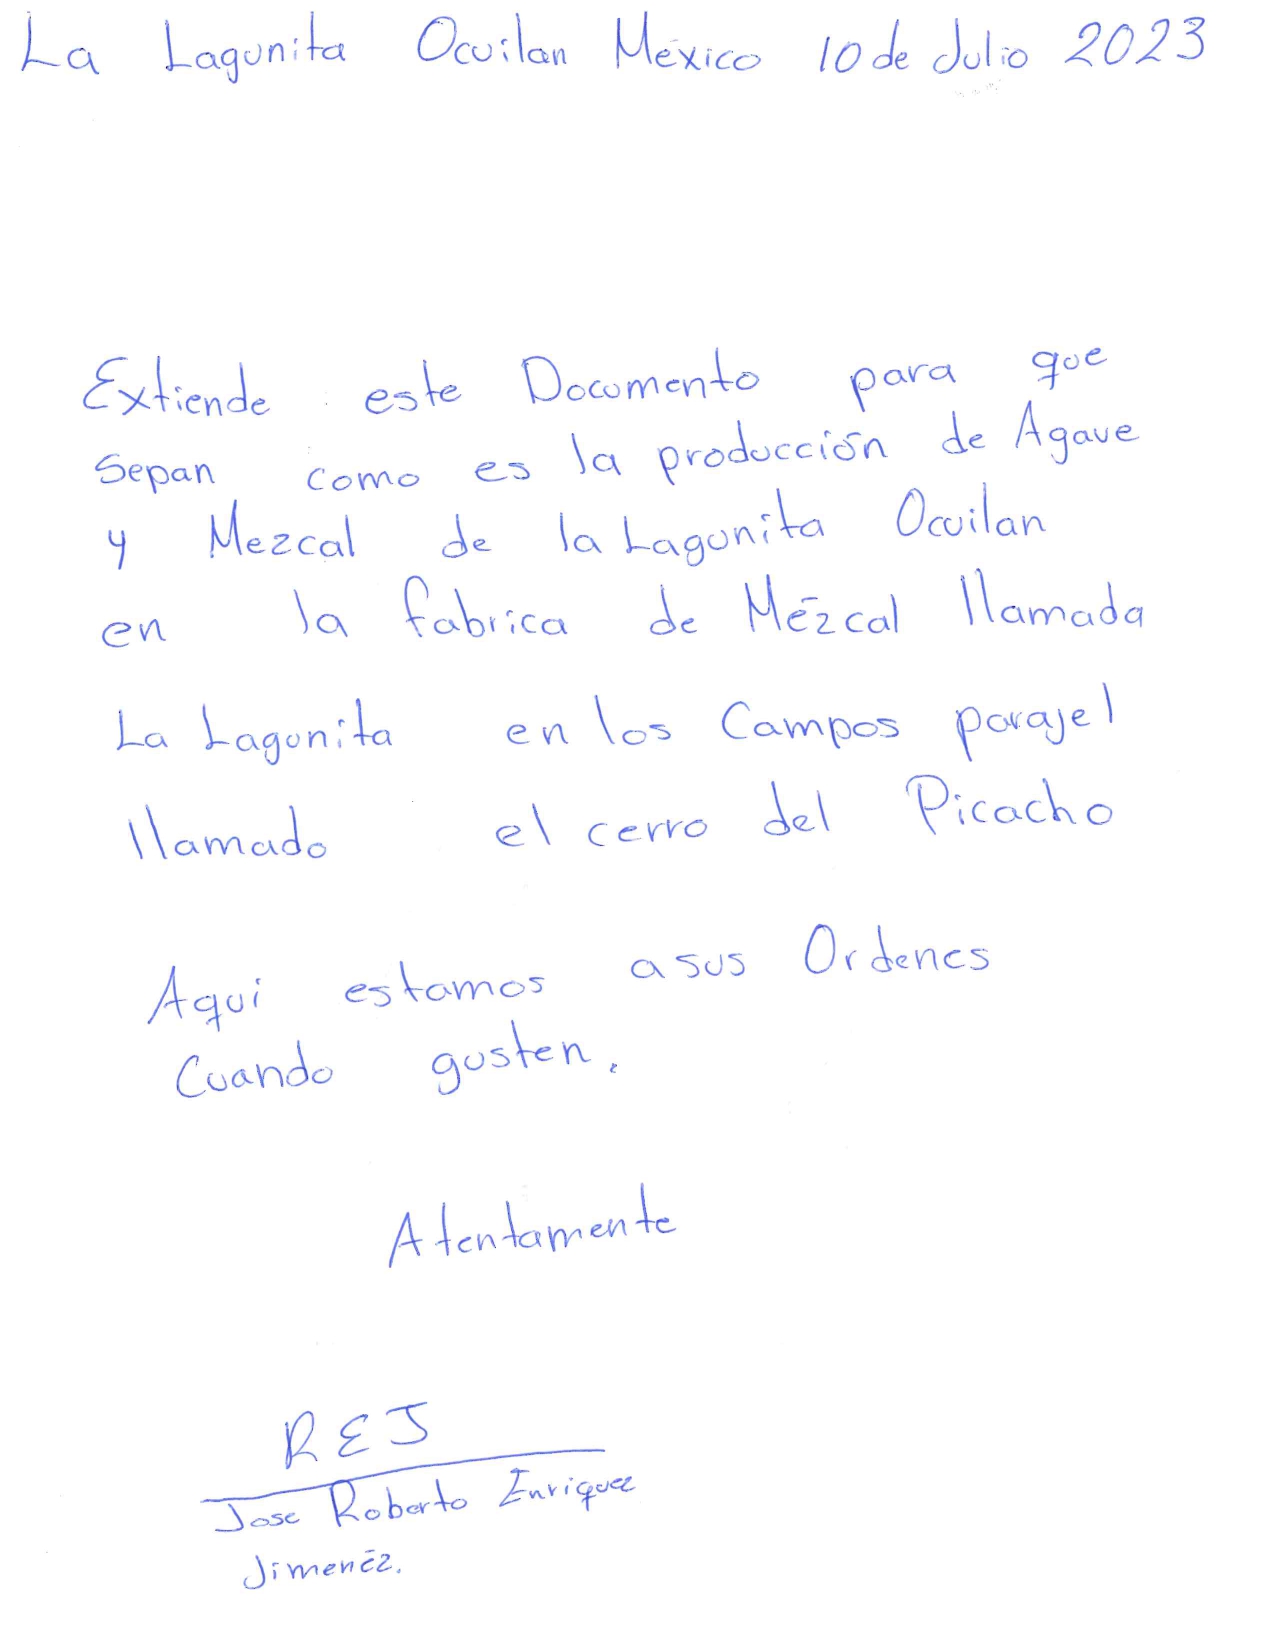 La Lagunita Ocuilan México 10 de Julio 2023
Extiende este Documento para que
Sepan como es la producción de Agave
y Mezcal de la Lagunita Ocuilan
en la fabrica de Mézcal llamada
La Lagunita en los Campos parajel
llamado el cerro del Picacho
Aqui estamos a sus Ordenes
Cuando gusten.
Atentamente
REJ
Jose Roberto Enriquez
Jimenéz.